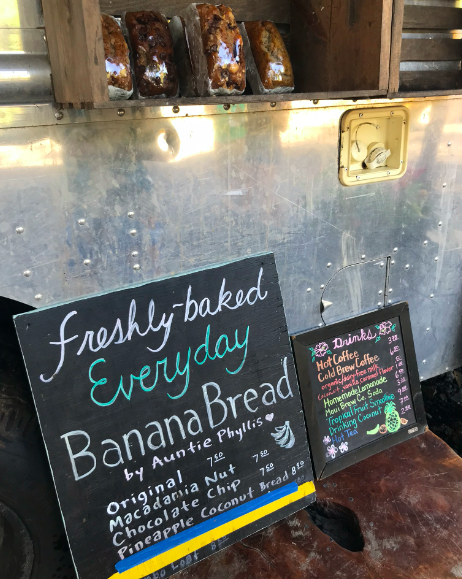 Freshly-baked
Everyday
Banana Bread
by Auntie Phyllis
Original 7.50
Macadamia Nut
Chocolate Chip 7.50
Pineapple Coconut Bread 8.50
Loaf
Drinks
Hot Coffee
Cold Brew Coffee
Homemade Lemonade
Maui Brew Co. Soda
Tropical Fruit Smoothie
Drinking Coconut
Hot Tea